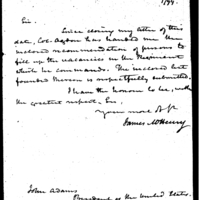 1799.
Sir.
Since closing my letter of this
date, Col. Ogden has handed me the
inclosed recommendation of persons to
fill up the vacancies in the Regiment
which he commands. The inclosed list
founded thereon is respectfully submitted.
I have the honour to be, with
the greatest respect, Sir,
Your most
James McHenry
John Adams
President of the United States.